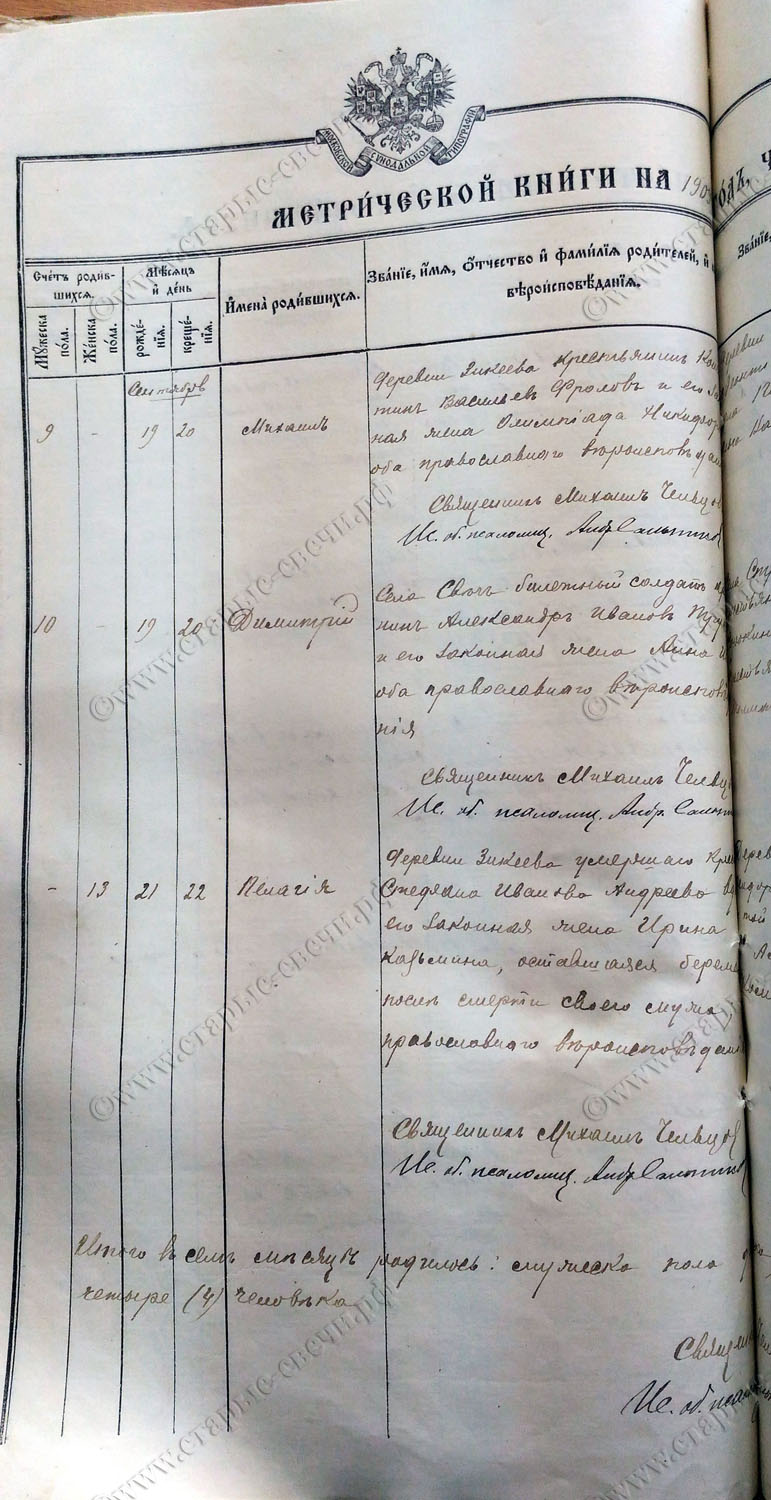 МОСКОВСКОЙ СѴНОДАЛЬНОЙ ТИПОГРАФІИ
МЕТРИ́ЧЕСКОЙ КНИ́ГИ НА 190
Сче́тъ роди́в-
шихся.
Мѣ́сяцъ
и҆ де́нь
И҆мена̀ роди́вшихся.
Зва́нїе, и҆́мя, ѻ҆́тчество и҆ фами́лїя роди́телей, и҆
вѣроисповѣ́данїя.
Мꙋ́жеска
по́ла.
Же́нска
по́ла.
рожде́-
нїя.
креще́-
нїя.
Сентябрь
9 - 19 20 Михаилъ
Деревни Зикеева крестьянинъ Кон
тинъ Васильевъ Фроловъ и его зак
ная жена Олимпіада Никифор
оба православнаго вѣроисповѣдан
Священникъ Михаилъ Чельцов
Ис. об. псаломщ. Андр Салтыков
10 - 19 20 Димитрій
Села билетный солдатъ
нинъ Александръ Ивановъ
и его законная жена Анна
оба православнаго вѣроисповѣ
нія
Священникъ Михаилъ Чельцо
Ис. об. псаломщ. Андр. Салты
- 13 21 22 Пелагія
Деревни Зикеева умершаго кре
Стефана Иванова Андреева в
его законная жена Ирина
Казьмина, оставшаяся береме
послѣ смерти своего мужа,
православнаго вѣроисповѣдан
Священникъ Михаилъ Чельцов
Ис. об. псаломщ. Андр Салтыков
Итого в семъ мѣсяцѣ родилось: мужеска пола
четыре (4) человѣка
Священ
Ис. об. псал
©www.старыс-свечи.рф